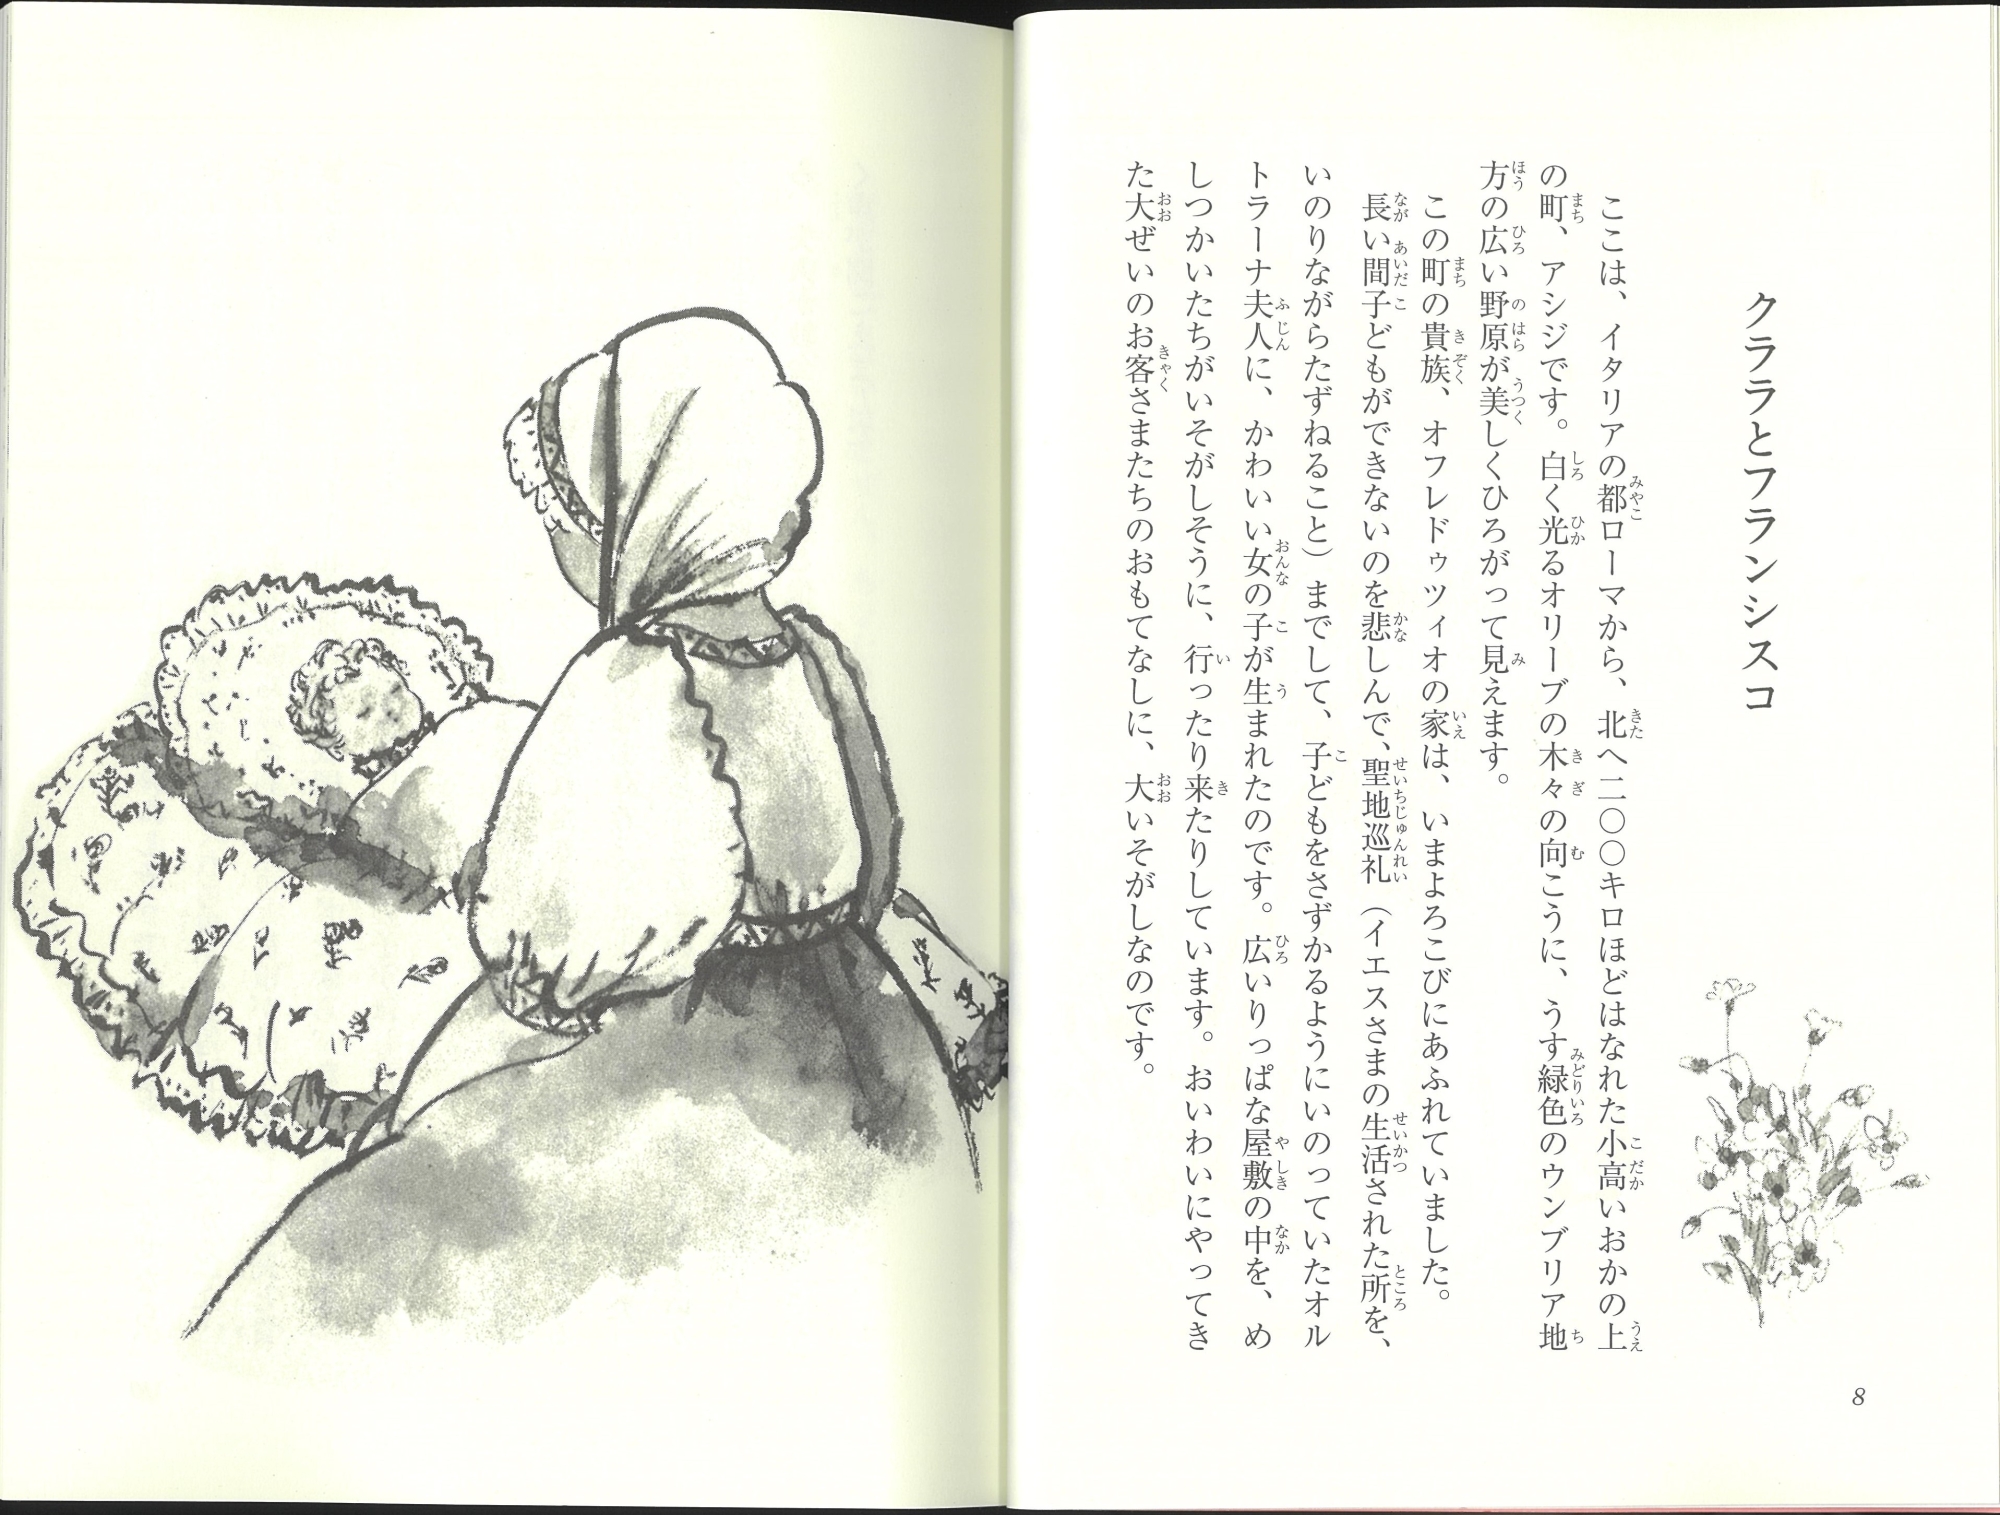 クララとフランシスコ
ここは、イタリアの都ローマから、北へ二〇〇キロほどはなれた小高いおかの上
の町、アシジです。白く光るオリーブの木々の向こうに、うす緑色のウンブリア地
方の広い野原が美しくひろがって見えます。
この町の貴族、オフレドゥツィオの家は、いまよろこびにあふれていました。
長い間子どもができないのを悲しんで、聖地巡礼（イエスさまの生活された所を、
いのりながらたずねること）までして、子どもをさずかるようにいのっていたオル
トラーナ夫人に、かわいい女の子が生まれたのです。広いりっぱな屋敷の中を、め
しつかいたちがいそがしそうに、行ったり来たりしています。おいわいにやってき
た大ぜいのお客さまたちのおもてなしに、大いそがしなのです。
8